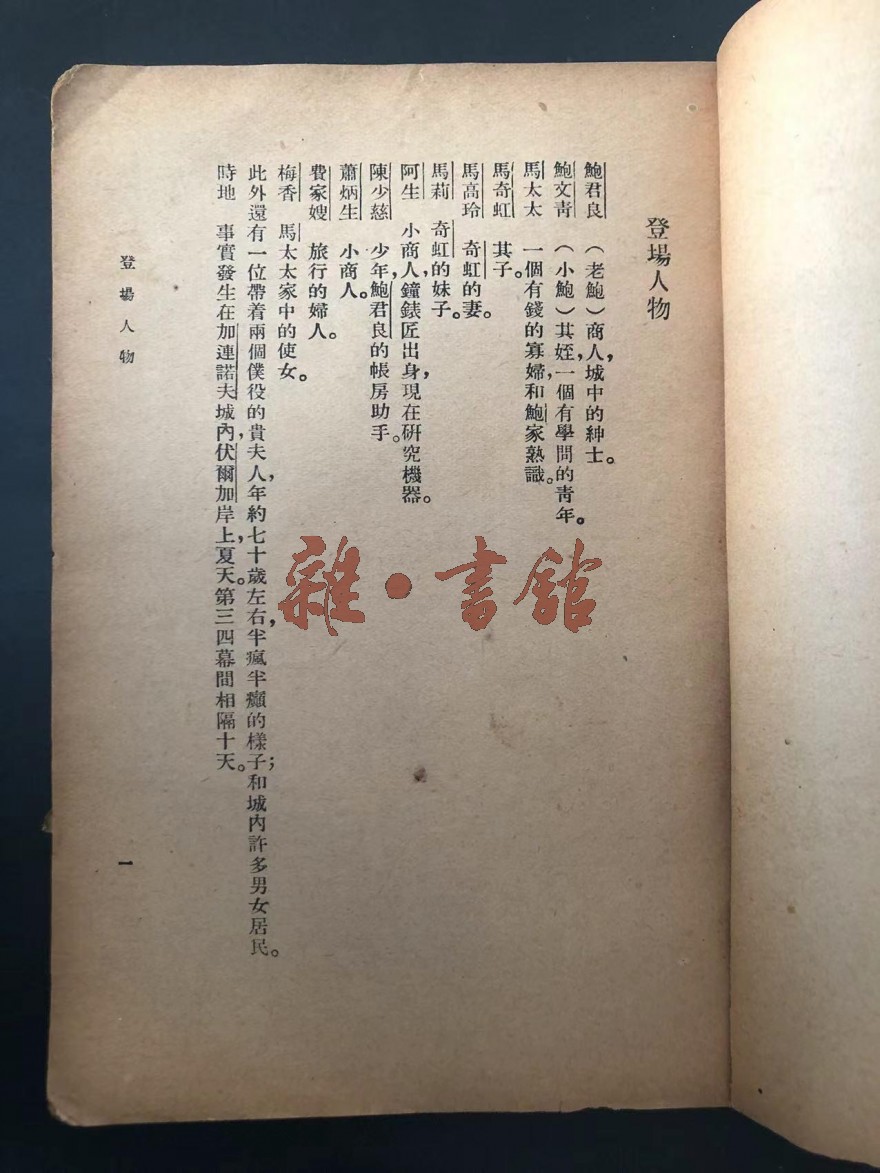 登場人物
鮑君良 （老鮑）商人，城中的紳士。
鮑文靑 （小鮑）其姪，一個有學問的靑年。
馬太太 一個有錢的寡婦，和鮑家熟識。
馬奇虹 其子。
馬高玲 奇虹的妻。
馬莉 奇虹的妹子。
阿生 小商人，鐘錶匠出身，現在研究機器。
陳少慈 少年，鮑君良的帳房助手。
蕭炳生 小商人。
費家嫂 旅行的婦人。
梅香 馬太太家中的使女。
此外還有一位帶着兩個僕役的貴夫人，年約七十歲左右，半瘋半癲的樣子；和城內許多男女居民。
時地 事實發生在加連諾夫城內，伏爾加岸上，夏天。第三四幕間相隔十天。
登場人物
一
雜·書館